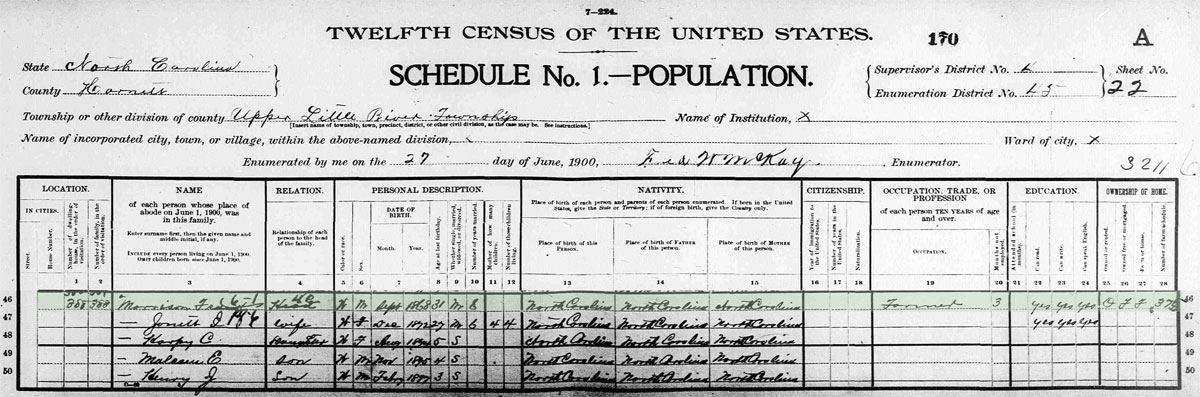 7—224.
TWELFTH CENSUS OF THE UNITED STATES.
170
A
State North Carolina
County Harnett
SCHEDULE No. 1.—POPULATION.
Supervisor's District No.
Enumeration District No.
Sheet No.
22
Township or other division of county Upper Little River Township
[Insert name of township, town, precinct, district, or other civil division, as the case may be. See instructions.]
Name of Institution, X
Name of incorporated city, town, or village, within the above-named division,
Ward of city, X
Enumerated by me on the 27 day of June, 1900, Fred W McKay, Enumerator.
3211
LOCATION.
IN CITIES.
Street.
House Number.
Number of dwelling-house, in the order of visitation.
Number of family, in the order of visitation.
NAME
of each person whose place of abode on June 1, 1900, was in this family.
Enter surname first, then the given name and middle initial, if any.
INCLUDE every person living on June 1, 1900.
OMIT children born since June 1, 1900.
RELATION.
Relationship of each person to the head of the family.
PERSONAL DESCRIPTION.
Color or race.
Sex.
DATE OF BIRTH.
Month.
Year.
Age at last birthday.
Whether single, married, widowed, or divorced.
Number of years married.
Mother of how many children.
Number of these children living.
NATIVITY.
Place of birth of each person and parents of each person enumerated. If born in the United States, give the State or Territory; if of foreign birth, give the Country only.
Place of birth of this PERSON.
Place of birth of FATHER of this person.
Place of birth of MOTHER of this person.
CITIZENSHIP.
Year of immigration to the United States.
Number of years in the United States.
Naturalization.
OCCUPATION, TRADE, OR PROFESSION
of each person TEN YEARS of age and over.
OCCUPATION.
Months not employed.
EDUCATION.
Attended school (in months).
Can read.
Can write.
Can speak English.
OWNERSHIP OF HOME.
Owned or rented.
Owned free or mortgaged.
Farm or house.
Number of farm schedule.
1 2 3 4 5 6 7 8 9 10 11 12 13 14 15 16 17 18 19 20 21 22 23 24 25 26 27 28
46 388 388 Morrison W M Sept 1868 31 M 6 North Carolina North Carolina North Carolina Farmer 3 yes yes yes O F F 46
47 — wife W F Dec 1872 27 M 6 4 4 North Carolina North Carolina North Carolina yes yes yes 47
48 — C. Daughter W F Aug 1894 5 S North Carolina North Carolina North Carolina 48
49 — E. Son W M Nov 1895 4 S North Carolina North Carolina North Carolina 49
50 — Henry J Son W M Feby 1897 3 S North Carolina North Carolina North Carolina 50